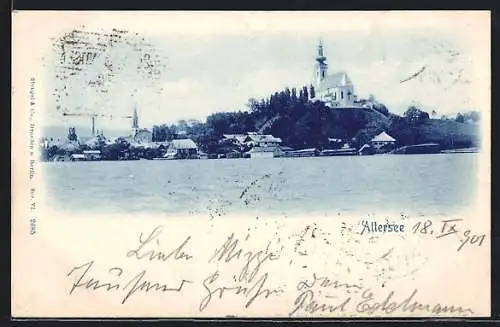 Stengel & Co., Dresden u. Berlin. Ser. VI. 2985
Attersee 18. IX 901
Liebe Mizzi
Tausend Grüße Dein
Paul Edelmann